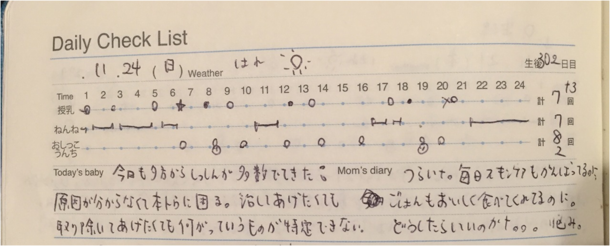 Daily Check List
11.24 (日) Weather はれ 生後302日目
Time 1 2 3 4 5 6 7 8 9 10 11 12 13 14 15 16 17 18 19 20 21 22 23 24 +3
授乳 計 7 回
ねんね 計 7 回
おしっこ 計 8 回
うんち 2
Today's baby 今日も夕方からしっしんが多数でてきた
原因が分からなくて本当に困る。治してあげたくても
取り除いてあげたくても何がっていうものが特定できない。
Mom's diary つらいナ。毎日スキンケアもがんばってるのに
ごはんもおいしく食べてくれてるのに。
どうしたらいいのかナ。。。悩み。